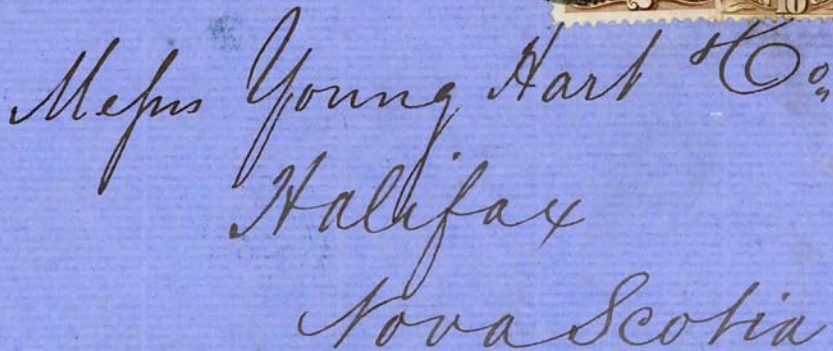 Messrs Young Hart & Co.
Halifax
Nova Scotia